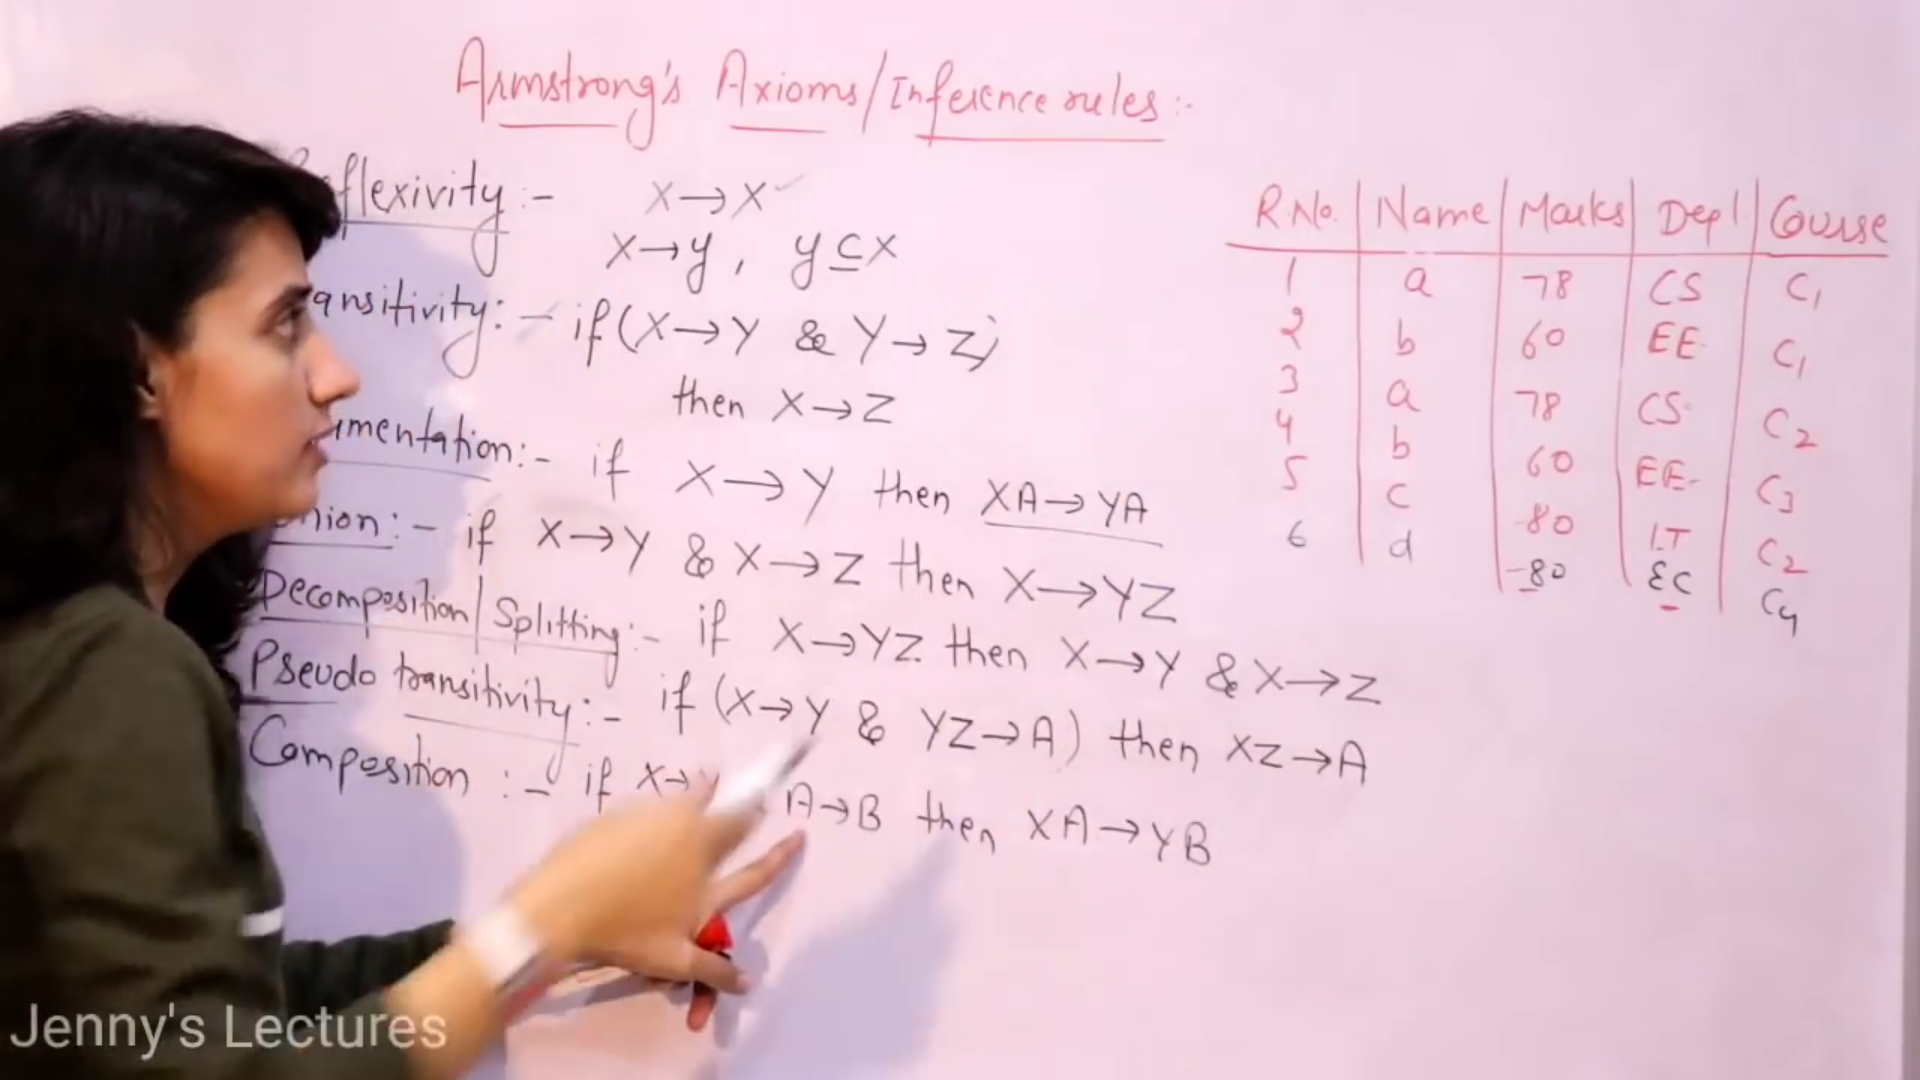 Armstrong's Axioms/Inference rules:-
flexivity :- X→X
X→y, y⊆x
ansitivity:- if(X→Y & Y→Z)
then X→Z
mentation:- if X→Y then XA→YA
nion:- if X→Y & X→Z then X→YZ
Decomposition/Splitting:- if X→YZ then X→Y & X→Z
Pseudo transitivity:- if (X→Y & YZ→A) then XZ→A
Composition :- if X→ A→B then XA→YB
R No. Name Marks Dept Course
1 a 78 CS C1
2 b 60 EE C1
3 a 78 CS C2
4 b 60 EE C3
5 c 80 IT C2
6 d 80 EC C4
Jenny's Lectures